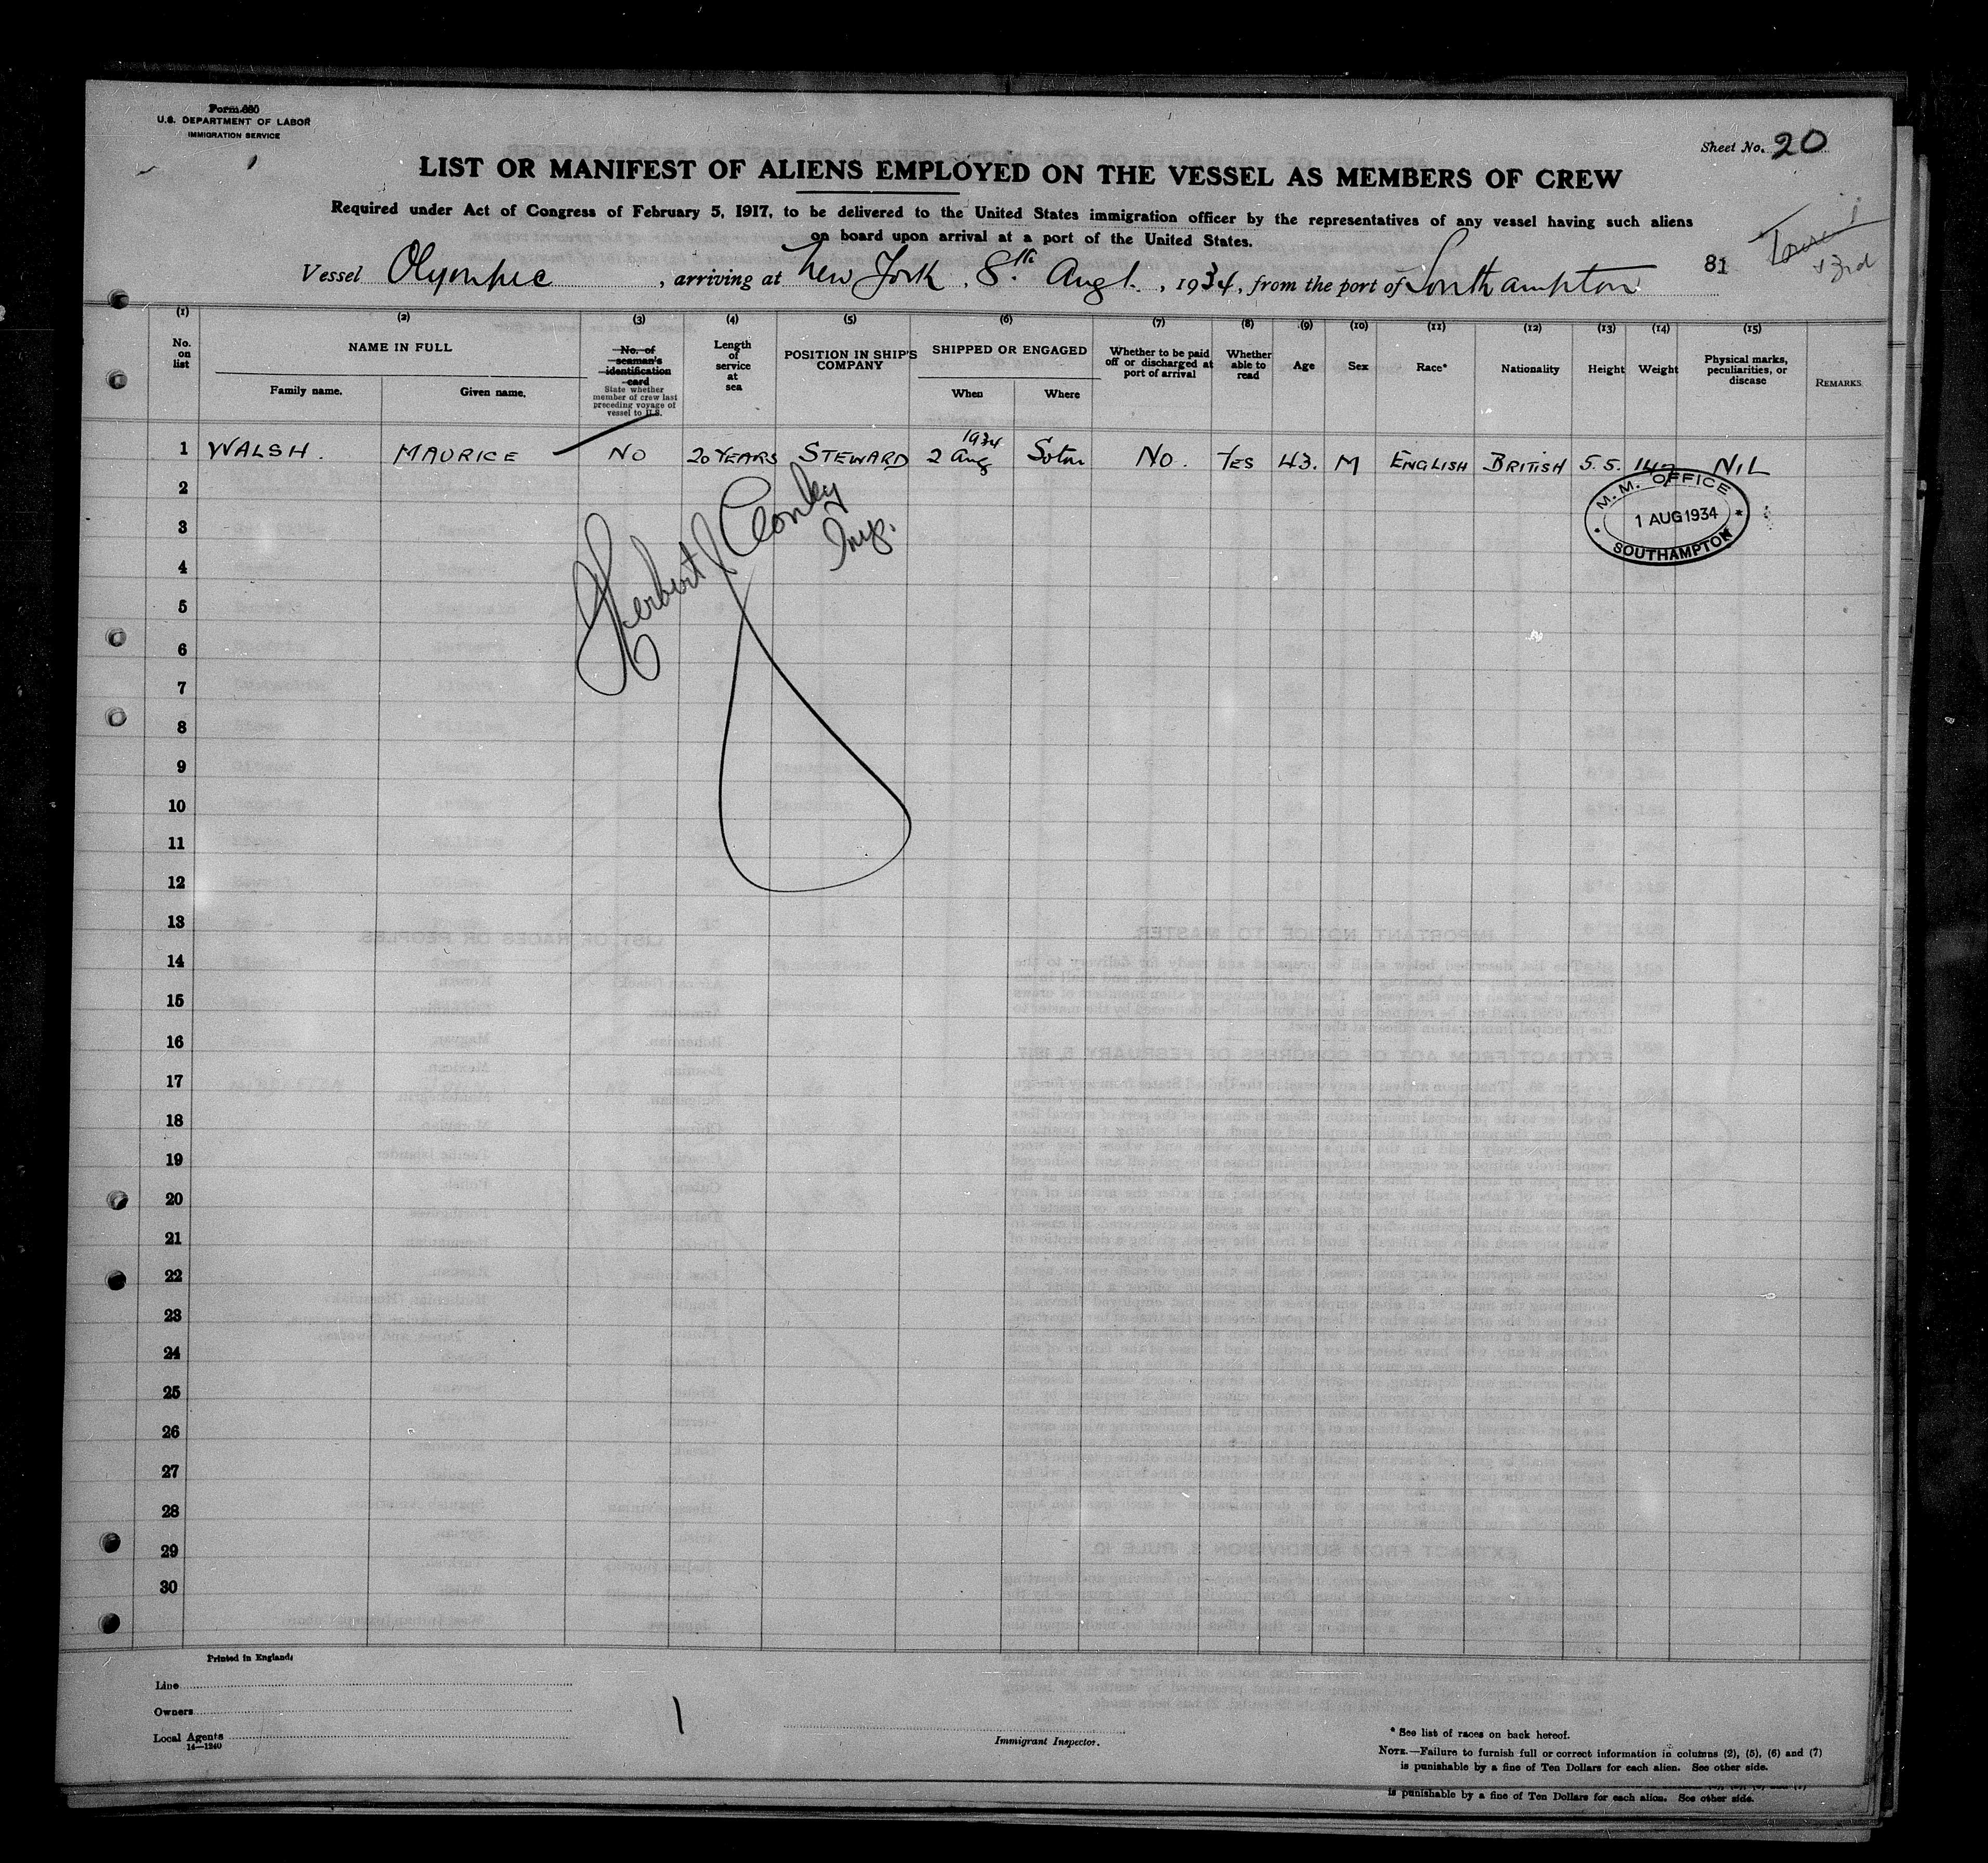 Form 680
U.S. DEPARTMENT OF LABOR
IMMIGRATION SERVICE
Sheet No. 20
LIST OR MANIFEST OF ALIENS EMPLOYED ON THE VESSEL AS MEMBERS OF CREW
Required under Act of Congress of February 5, 1917, to be delivered to the United States immigration officer by the representatives of any vessel having such aliens
on board upon arrival at a port of the United States.
81
3rd
Vessel Olympic, arriving at New York, 8th Augt., 1934, from the port of Southampton
(1) (2) (3) (4) (5) (6) (7) (8) (9) (10) (11) (12) (13) (14) (15)
No. on list
NAME IN FULL
Family name. Given name.
No. of seaman's identification card
State whether member of crew last preceding voyage of vessel to U.S.
Length of service at sea
POSITION IN SHIP'S COMPANY
SHIPPED OR ENGAGED
When Where
Whether to be paid off or discharged at port of arrival
Whether able to read
Age
Sex
Race*
Nationality
Height
Weight
Physical marks, peculiarities, or disease
REMARKS
1 WALSH. MAURICE NO 20 YEARS STEWARD 2 Aug 1934 Soton NO. YES 43. M ENGLISH BRITISH 5.5. NIL
M.M. OFFICE
1 AUG 1934
SOUTHAMPTON
Herbert J
Insp.
2
3
4
5
6
7
8
9
10
11
12
13
14
15
16
17
18
19
20
21
22
23
24
25
26
27
28
29
30
Printed in England.
Line
Owners
Local Agents
14—1240
1
Immigrant Inspector.
* See list of races on back hereof.
NOTE.—Failure to furnish full or correct information in columns (2), (5), (6) and (7)
is punishable by a fine of Ten Dollars for each alien. See other side.
is punishable by a fine of Ten Dollars for each alien. See other side.